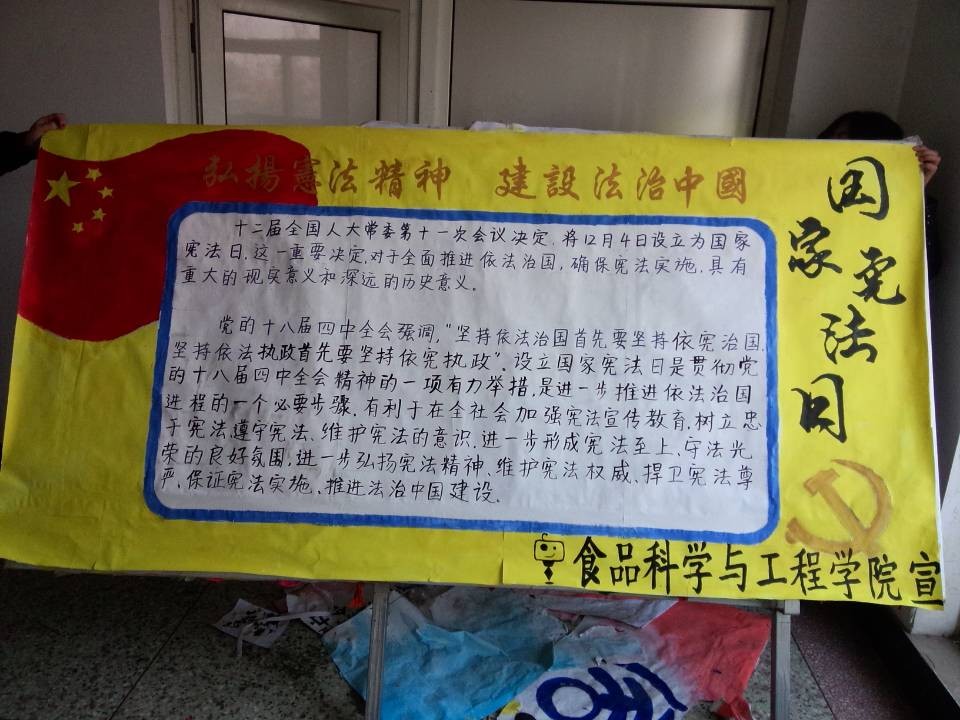 弘揚憲法精神 建設法治中國
十二届全国人大常委第十一次会议决定,将12月4日设立为国家
宪法日,这一重要决定,对于全面推进依法治国,确保宪法实施,具有
重大的现实意义和深远的历史意义。
党的十八届四中全会强调,"坚持依法治国首先要坚持依宪治国,
坚持依法执政首先要坚持依宪执政",设立国家宪法日是贯彻党
的十八届四中全会精神的一项有力举措,是进一步推进依法治国
进程的一个必要步骤,有利于在全社会加强宪法宣传教育,树立忠
于宪法、遵守宪法、维护宪法的意识,进一步形成宪法至上、守法光
荣的良好氛围,进一步弘扬宪法精神、维护宪法权威、捍卫宪法尊
严、保证宪法实施、推进法治中国建设.
国家宪法日
食品科学与工程学院宣